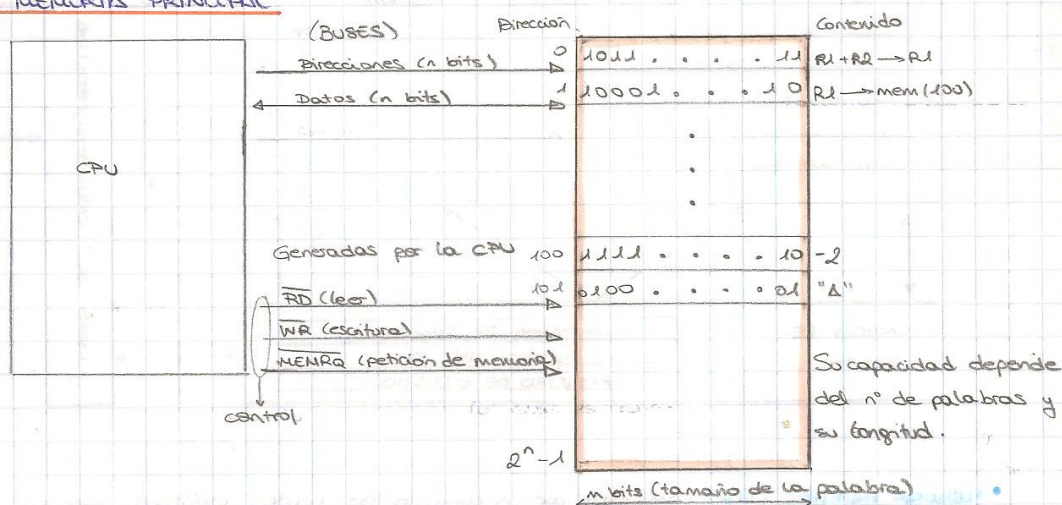 MEMORIA PRINCIPAL
(BUSES)
Dirección.
Contenido
Direcciones (n bits)
0
1011 . . . . 11
R1+R2 → R1
Datos (n bits)
1
10001 . . . 10
R1 → mem(100)
CPU
Generadas por la CPU
100
1111 . . . . 10
-2
RD (leer)
101
0100 . . . . 01
"A"
WR (escritura)
MEMRQ (petición de memoria)
control
Su capacidad depende
del nº de palabras y
su longitud.
2^n-1
m bits (tamaño de la palabra)